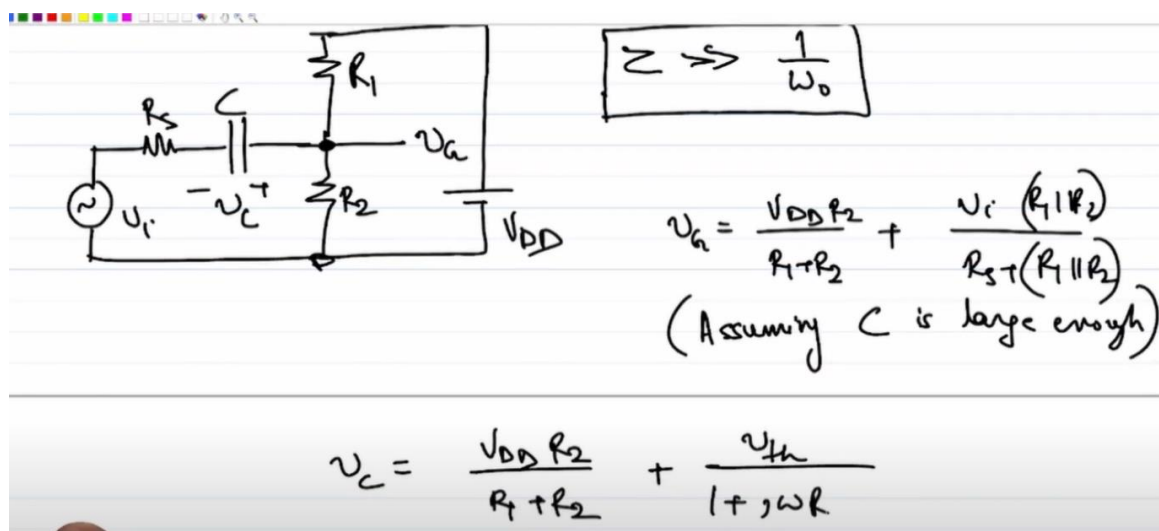 R₁
Z >> 1/ω₀
Rs C
v_G
− v_C + R₂
v_i
V_DD
v_G = V_DD R₂ / R₁+R₂ + v_i (R₁||R₂) / Rs+(R₁||R₂)
(Assuming C is large enough)
v_C = V_DD R₂ / R₁+R₂ + v_th / 1+jωR